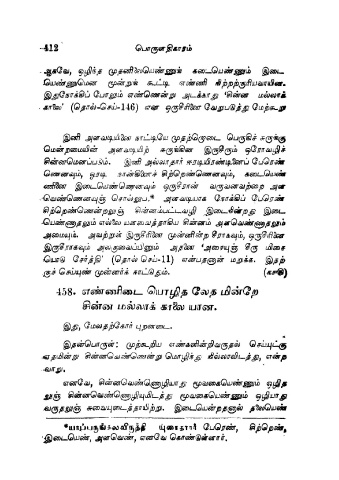 412 பொருளதிகாரம்
ஆகவே, ஒழிந்த முதனிலையெண்ணுங் கடையெண்ணும் இடை
யெண்ணுமென மூன்றுங் கூட்டி எண்ணி கிற்றற்குரியவாயின.
இதுநோக்கிப் போலும் எண்ணென்று அடக்காது 'சின்ன மல்லாக்
காலை' (தொல்-செய்-146) என ஒருசீரினை வேறுபடுத்து மேற்கூறு
இனி அளவடியினை காட்டியே முதற்றொடை பெருகிச் சுருங்கு
மென்றமையின் அளவடியிற் சுருங்கின இருசீரும் ஓரோவழிச்
சின்னமெனப்படும். இனி அல்லாதார் ஈரடியிரண்டினைப் பேரெண்
ணெனவும், ஓரடி நான்கினைச் சிற்றெண்ணெனவும், கடையெண்
ணினை இடையெண்ணெனவும் ஒருசீரான் வருவனவற்றை அள
வெண்ணெனவுஞ் சொல்லுப.* அளவடியாக நோக்கிப் பேரெண்
சிற்றெண்ணென்றலுஞ் சின்னம்பட்டவழி இடைநின்றது இடை
யெண்ணாதலும் எல்லை யளவைத்தாகிய சின்னம் அளவெண்ணாதலும்
அமையும். அவற்றுள் இருசீரினை முன்னின்ற சீராகவும், ஒருசீரினை
இருசீராகவும் அலகுவைப்பினும் அதனை 'அசையுஞ் சீரு மிசை
யொடு சேர்த்தி' (தொல்-செய்-11) என்பதனான் மறாக. இதற்
குச் செய்யுண் முன்னர்க் காட்டுதும்.
458. எண்ணிடை யொழித லேத மின்றே
சின்ன மல்லாக் காலை யான.
இது, மேலதற்கோர் புறனடை.
இதன்பொருள்: முற்கூறிய எண்களின்றிவருதல் செய்யுட்கு
ஏதமின்று சின்னவெண்ணென்று மொழிந்து நில்லாவிடத்து, என்ற
வாறு.
எனவே, சின்னவெண்ணொழியாது மூவகையெண்ணும் ஒழித
லுஞ் சின்னவெண்ணொழியுமிடத்து மூவகையெண்ணும் ஒழியாது
வருதலுஞ் சுவையுடைத்தாயிற்று. இடையென்றதனால் தலையெண்
*யாப்பருங்கலவிருத்தி யுரைகாரர் பேரெண், சிற்றெண்,
இடையெண், அளவெண், எனவே கொண்டுள்ளார்.